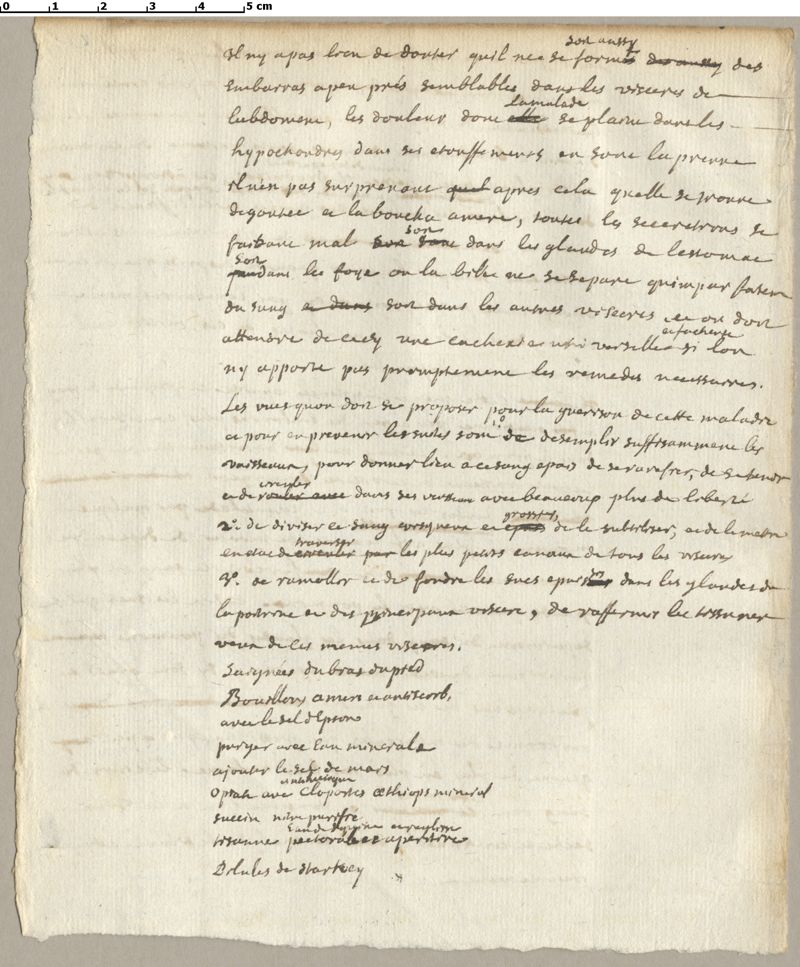 0 1 2 3 4 5 cm
soit aussy
Il ny a pas lieu de douter quil ne se forme des aussy des
embarras a peu prés semblables dans les visceres de
la malade
labdomene, les douleur donc elle se plaint dans les
hypochondres dans ses etouffements en sont la preuve
Il nen pas surprenant quel apres cela quelle se trouve
degoutée et la boucha amere, toutes les secretions se
soit
faisant mal soit dans les glandes de lestomac
soit
dans le foye ou la bille ne se separe quimparfaitem
du sang et dans soit dans les autres visceres et on doit
et facheuse
attendre de cecy une cachexie universelle si lon
ny apporte pas promptement les remedes necessaires.
Les vues quon doit se proposer pour la guerison de cette maladie
et pour en prevenir les suites sont 1º de desemplir suffisamment les
vaisseaux, pour donner lieu a ce sang epais de se rarefier, de setendre
circuler
et de rouler avec dans ses vaissaux avec beaucoup plus de liberté
grossier,
2º. de diviser ce sang visqueux et epais de le subtiliser, et de le mettre
traverser
en etat de circuler par les plus petits canaux de tous les visceres
3º. de ramollir et de fondre les sucs epaissis dans les glandes de
la poitrine et des principaux viscere, de raffermir le tissu ner
veux de ces memes visceres.
Saignées du bras du pied
Bouillons amers et antiscorb.
avec le sel dEpsom
purger avec leau minerale
ajouter le sel de mars
opiat avec cloportes æthiops mineral
succin nitre purifié
tisanne pectorale et aperitive
Pilules de starkey